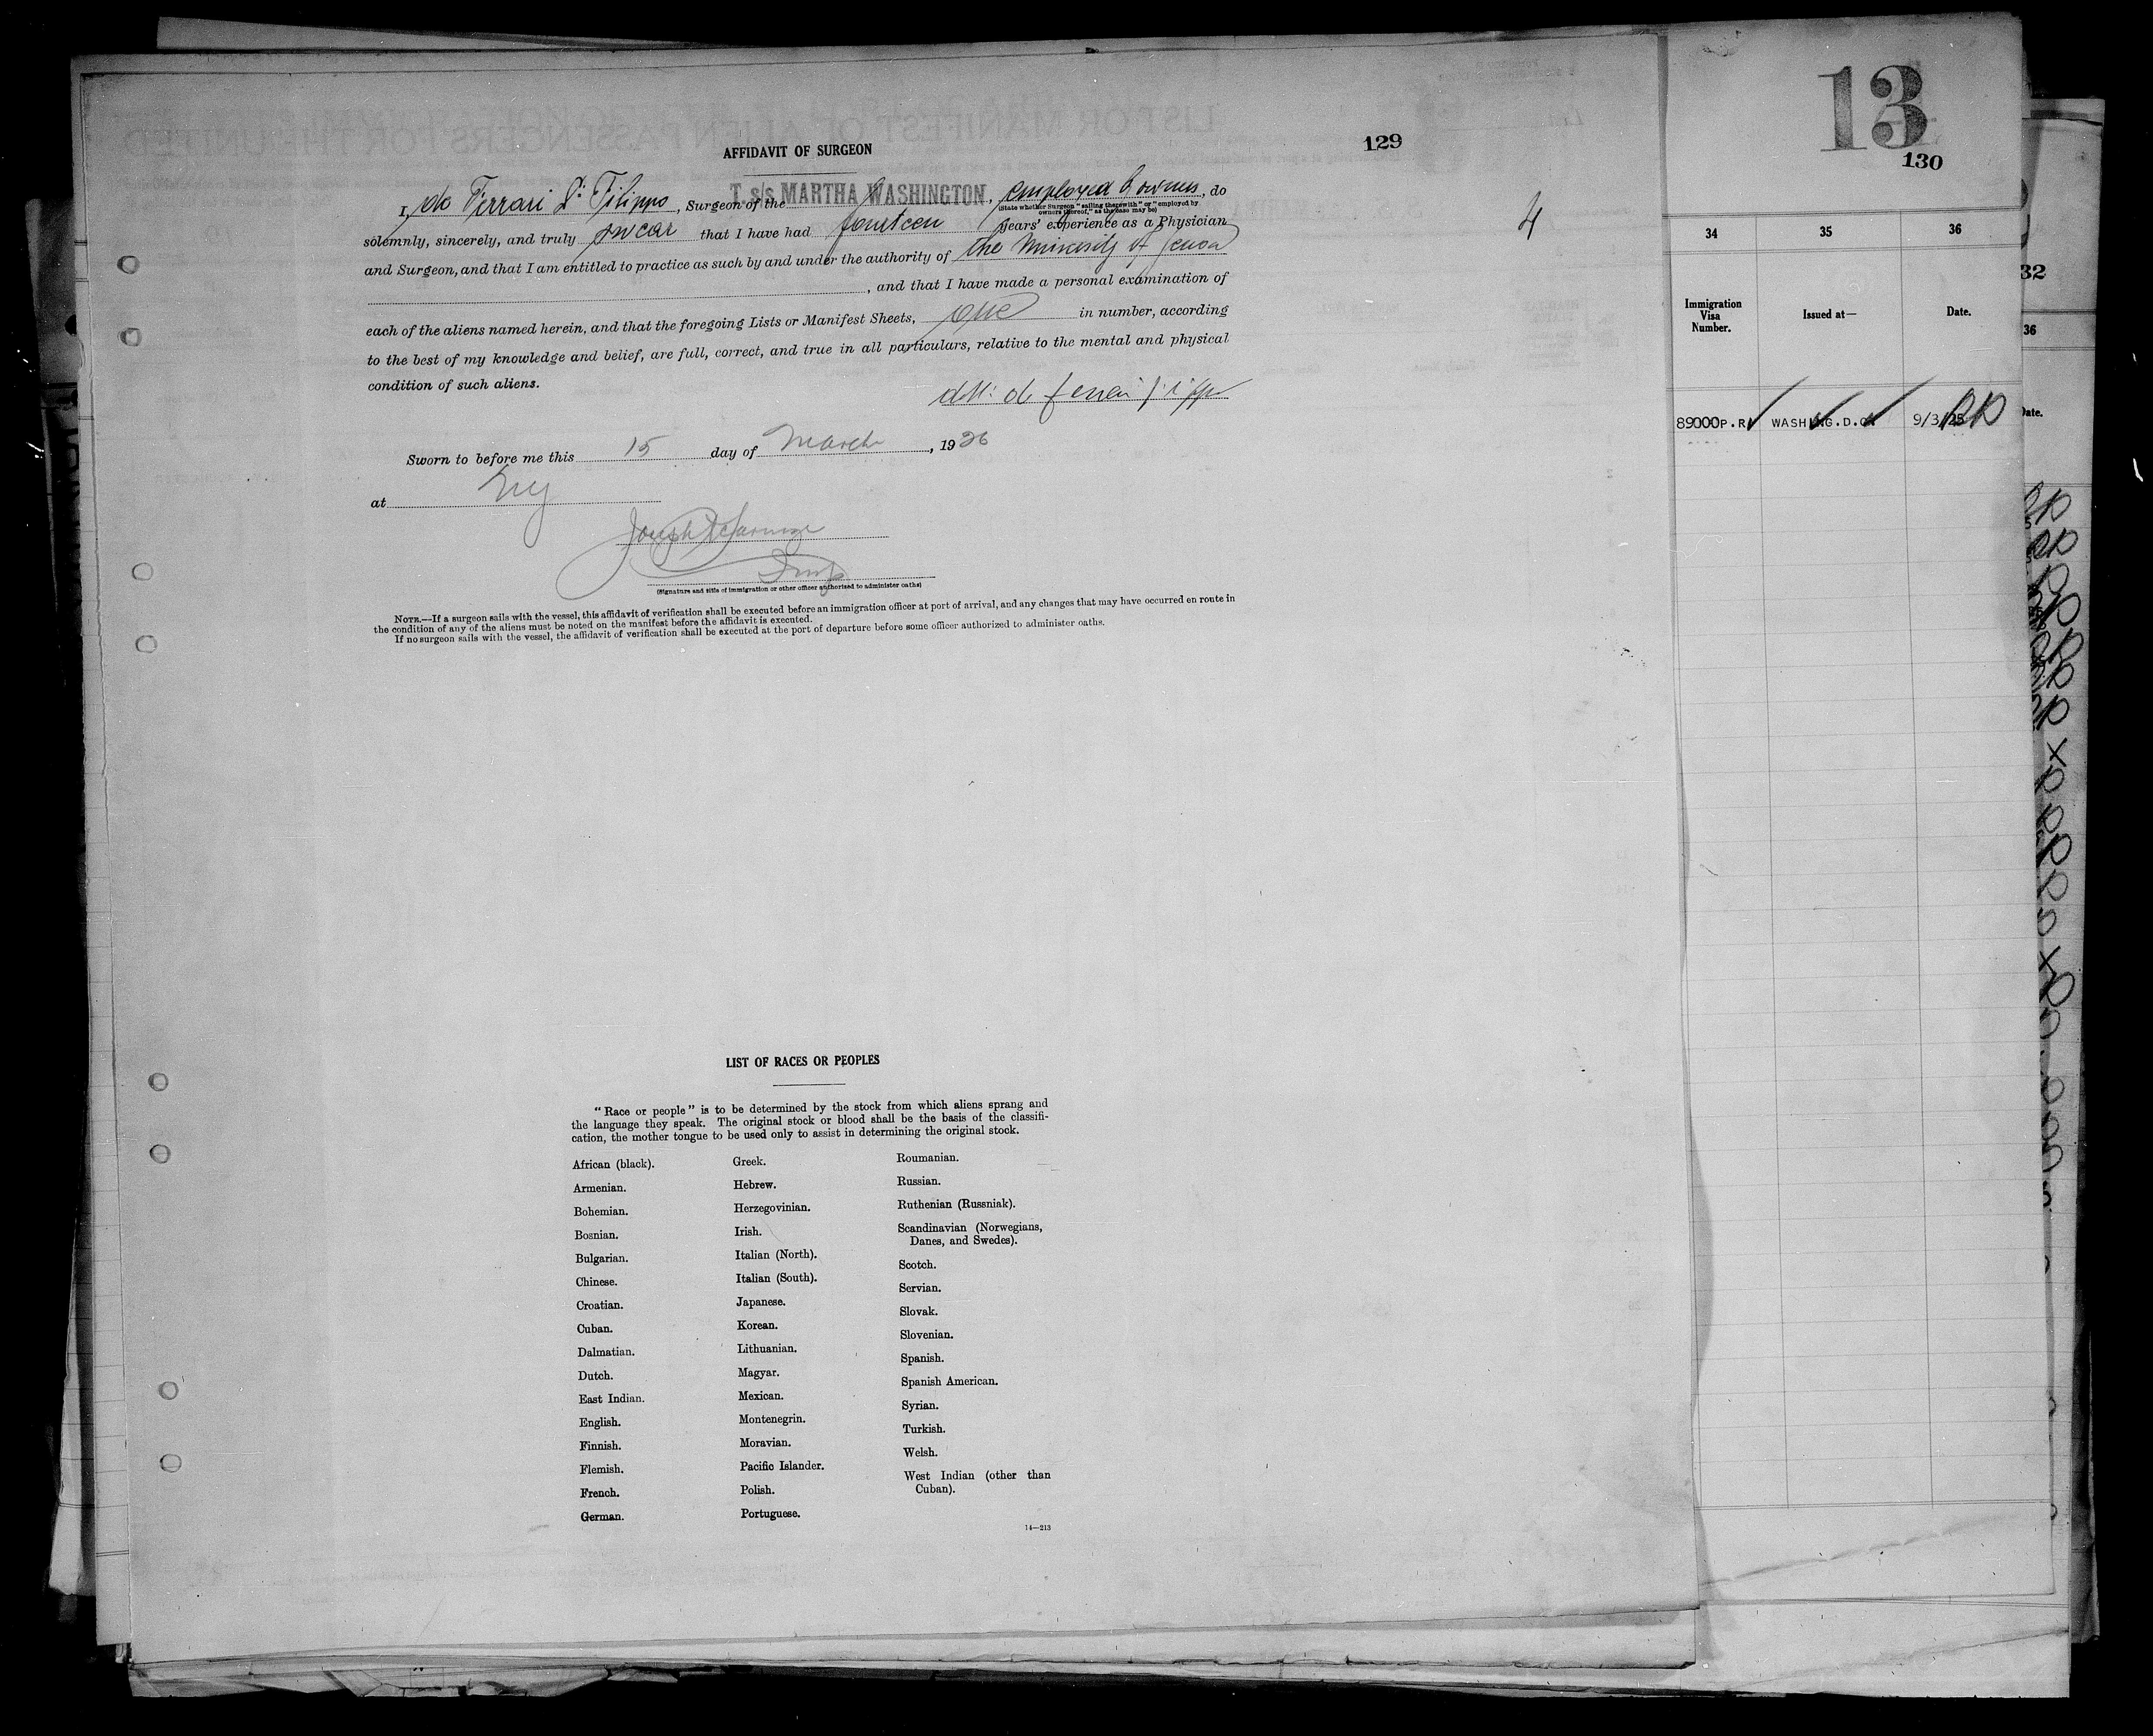 13
129
130
AFFIDAVIT OF SURGEON
I, de Ferrari Dr Filippo, Surgeon of the T. s/s MARTHA WASHINGTON, employed by owners, do
(State whether Surgeon "sailing therewith" or "employed by
owners thereof," as the case may be)
4
solemnly, sincerely, and truly swear that I have had fourteen years' experience as a Physician
and Surgeon, and that I am entitled to practice as such by and under the authority of the University of Genoa
, and that I have made a personal examination of
each of the aliens named herein, and that the foregoing Lists or Manifest Sheets, one in number, according
to the best of my knowledge and belief, are full, correct, and true in all particulars, relative to the mental and physical
condition of such aliens.
Sworn to before me this 15 day of March, 1926
at NY
(Signature and title of immigration or other officer authorized to administer oaths)
NOTE.—If a surgeon sails with the vessel, this affidavit of verification shall be executed before an immigration officer at port of arrival, and any changes that may have occurred en route in
the condition of any of the aliens must be noted on the manifest before the affidavit is executed.
If no surgeon sails with the vessel, the affidavit of verification shall be executed at the port of departure before some officer authorized to administer oaths.
LIST OF RACES OR PEOPLES
"Race or people" is to be determined by the stock from which aliens sprang and
the language they speak. The original stock or blood shall be the basis of the classifi-
cation, the mother tongue to be used only to assist in determining the original stock.
African (black).
Armenian.
Bohemian.
Bosnian.
Bulgarian.
Chinese.
Croatian.
Cuban.
Dalmatian.
Dutch.
East Indian.
English.
Finnish.
Flemish.
French.
German.
Greek.
Hebrew.
Herzegovinian.
Irish.
Italian (North).
Italian (South).
Japanese.
Korean.
Lithuanian.
Magyar.
Mexican.
Montenegrin.
Moravian.
Pacific Islander.
Polish.
Portuguese.
Roumanian.
Russian.
Ruthenian (Russniak).
Scandinavian (Norwegians,
Danes, and Swedes).
Scotch.
Servian.
Slovak.
Slovenian.
Spanish.
Spanish American.
Syrian.
Turkish.
Welsh.
West Indian (other than
Cuban).
14—213
34 35 36
Immigration
Visa
Number.
Issued at—
Date.
89000P.R. WASHING.D.C. 9/3/25
32
36
Date.